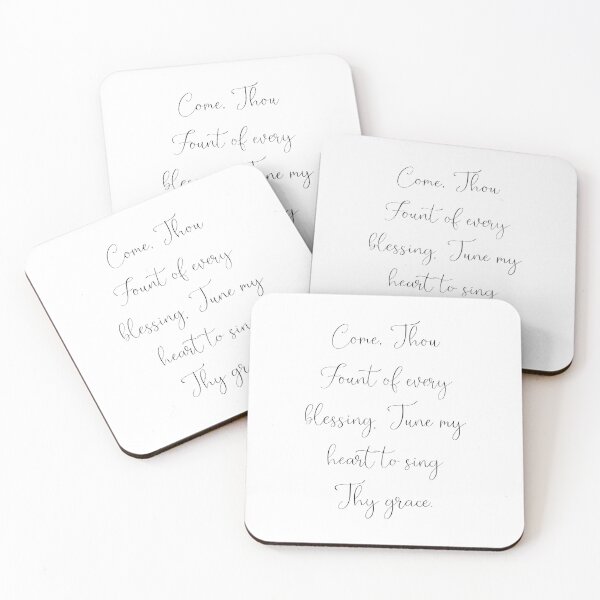 Come, Thou
Fount of every
my
Come, Thou
Fount of every
blessing. Tune my
heart to sing
Come, Thou
Fount of every
blessing. Tune my
heart to sin
Thy gra
Come, Thou
Fount of every
blessing. Tune my
heart to sing
Thy grace.